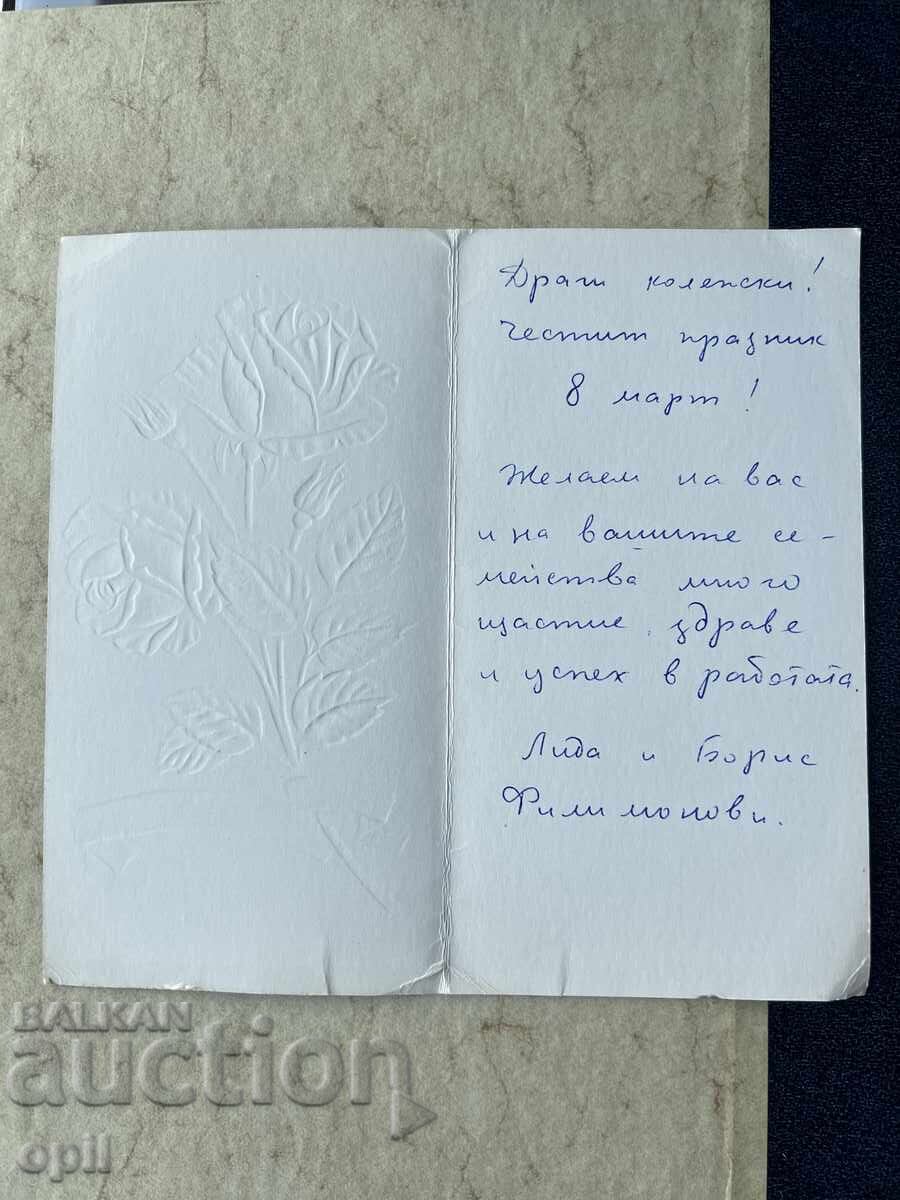 Драги колежки!
Честит празник
8 март!
Желаем на вас
и на вашите се-
мейства много
щастие, здраве
и успех в работата.
Лида и Борис
Филимонови.
BALKAN
auction
opil